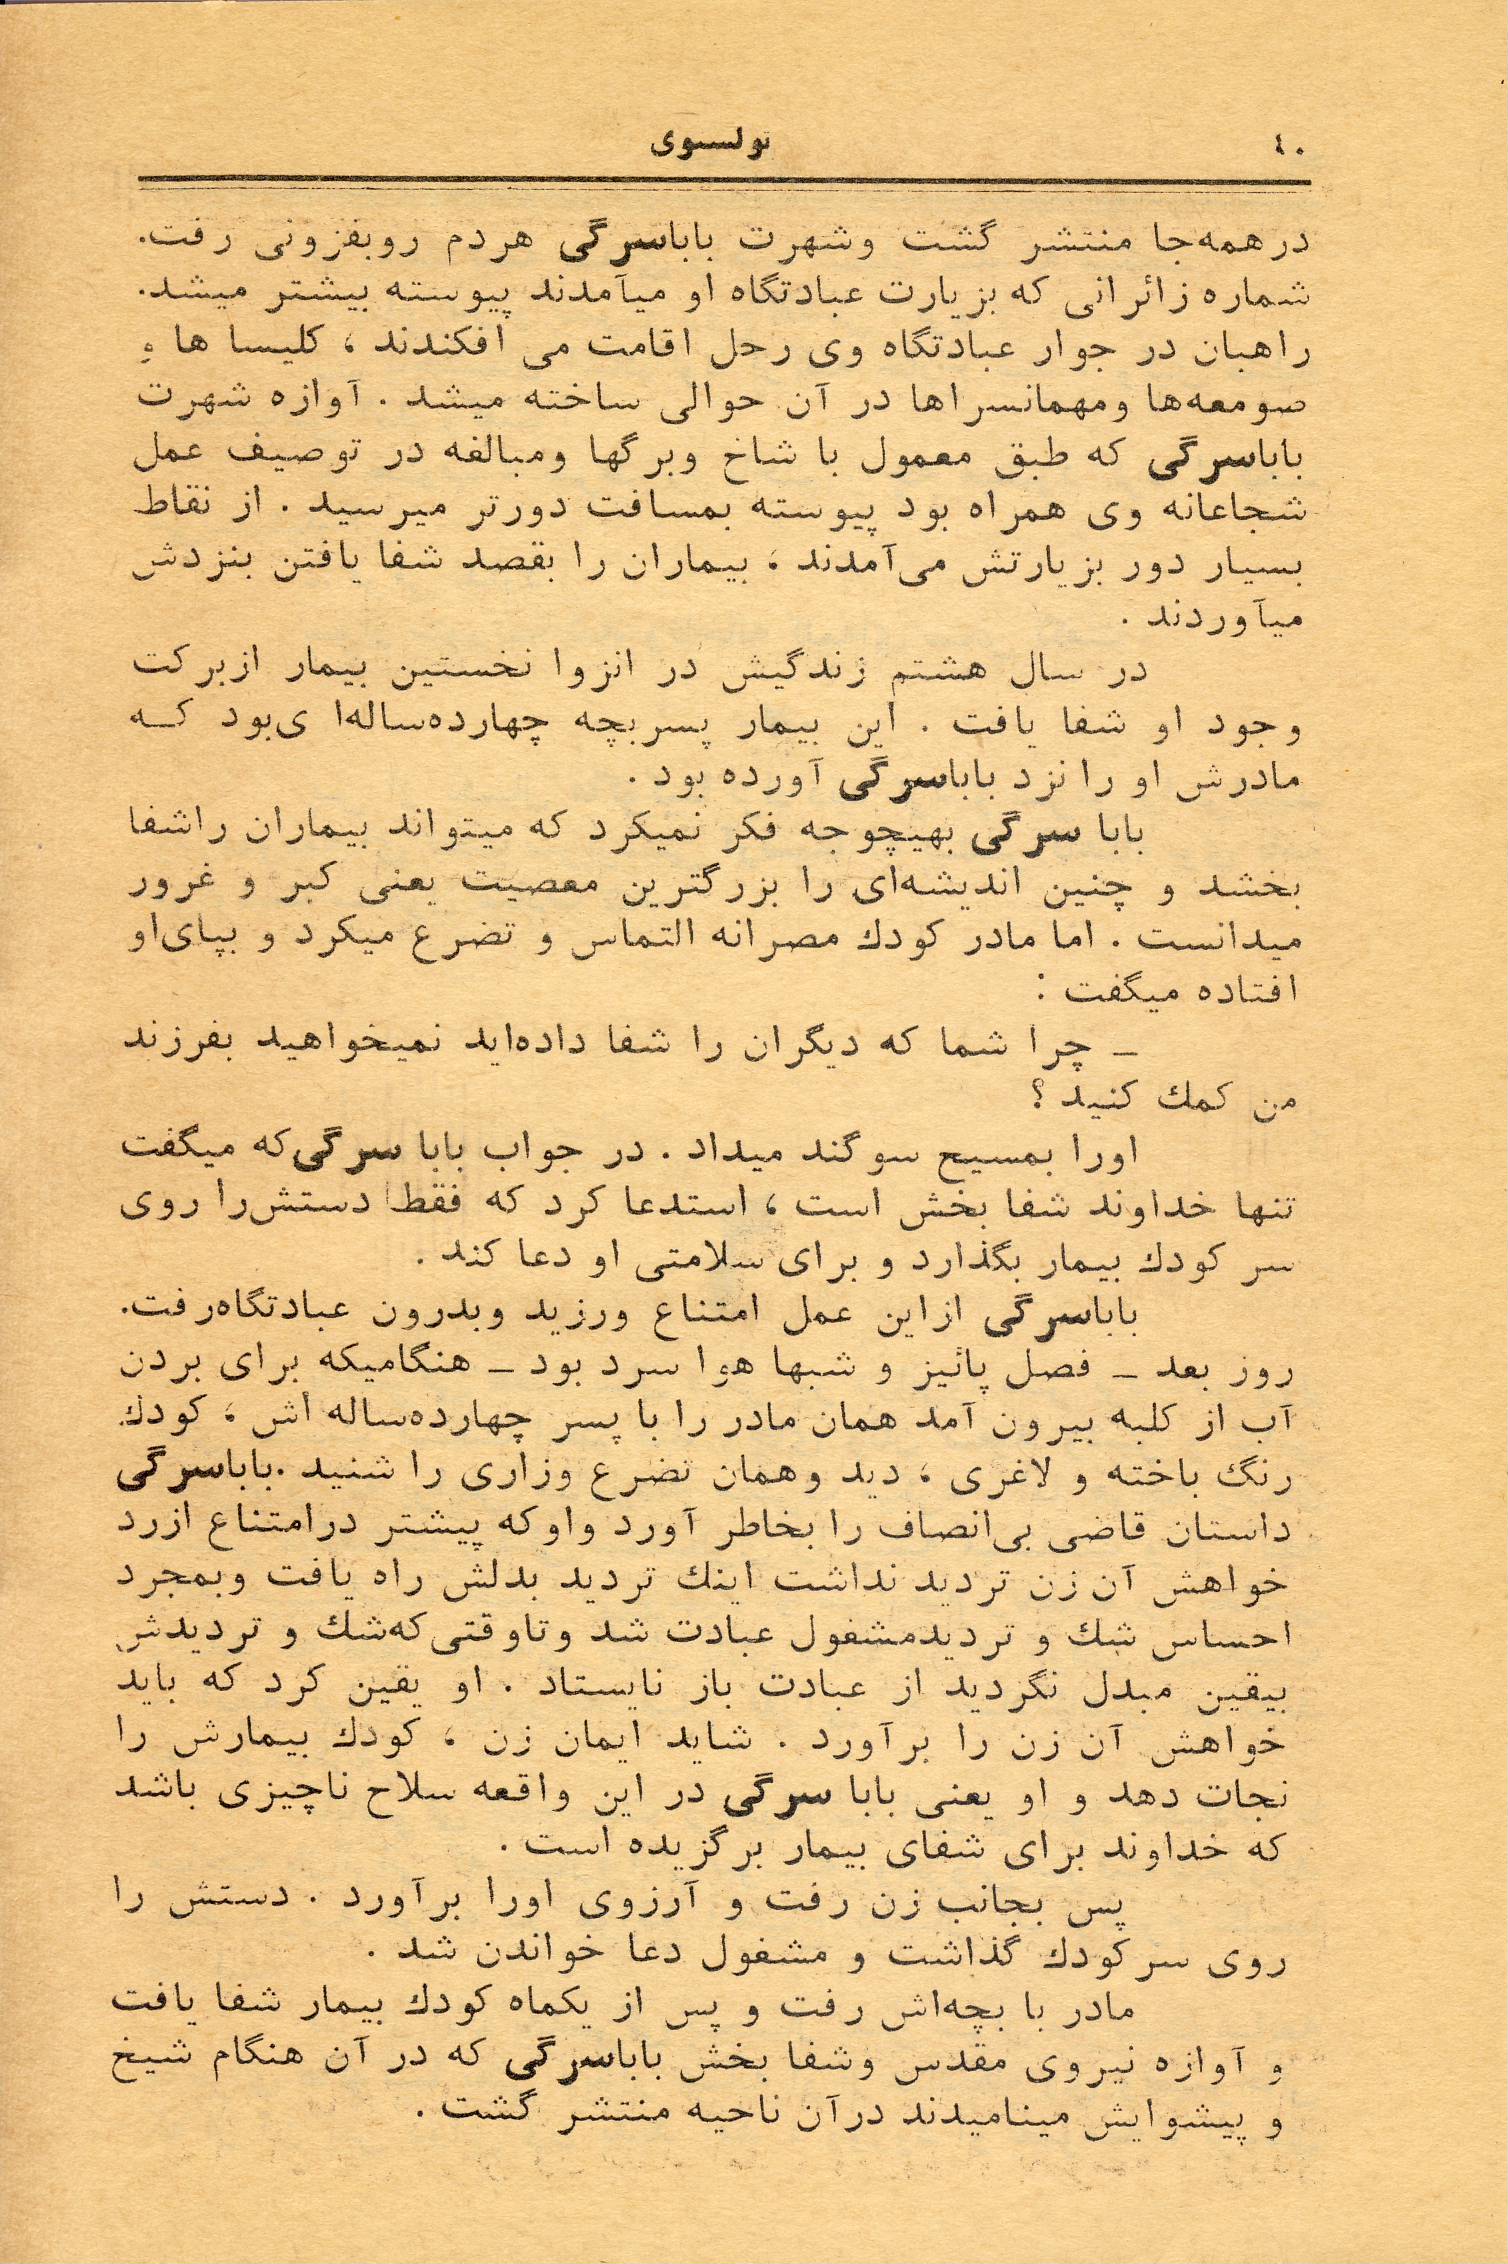 ٤٠
تولستوی
در همه‌جا منتشر گشت وشهرت باباسرگی هردم روبفزونی رفت.
شماره زائرانی که بزیارت عبادتگاه او میآمدند پیوسته بیشتر میشد.
راهبان در جوار عبادتگاه وی رحل اقامت می افکندند ، کلیسا ها و
صومعه‌ها ومهمانسراها در آن حوالی ساخته میشد . آوازه شهرت
باباسرگی که طبق معمول با شاخ وبرگها ومبالغه در توصیف عمل
شجاعانه وی همراه بود پیوسته بمسافت دورتر میرسید . از نقاط
بسیار دور بزیارتش می‌آمدند ، بیماران را بقصد شفا یافتن بنزدش
میآوردند .
در سال هشتم زندگیش در انزوا نخستین بیمار ازبرکت
وجود او شفا یافت . این بیمار پسربچه چهارده‌ساله‌ا ی‌بود کـه
مادرش او را نزد باباسرگی آورده بود .
بابا سرگی بهیچوجه فکر نمیکرد که میتواند بیماران راشفا
بخشد و چنین اندیشه‌ای را بزرگترین معصیت یعنی کبر و غرور
میدانست . اما مادر کودك مصرانه التماس و تضرع میکرد و بپای‌او
افتاده میگفت :
ـ چرا شما که دیگران را شفا داده‌اید نمیخواهید بفرزند
من کمك کنید ؟
اورا بمسیح سوگند میداد . در جواب بابا سرگی‌که میگفت
تنها خداوند شفا بخش است ، استدعا کرد که فقط دستش‌را روی
سر کودك بیمار بگذارد و برای سلامتی او دعا کند .
باباسرگی ازاین عمل امتناع ورزید وبدرون عبادتگاه‌رفت.
روز بعد ـ فصل پائیز و شبها هوا سرد بود ـ هنگامیکه برای بردن
آب از کلبه بیرون آمد همان مادر را با پسر چهارده‌ساله أش ، کودك
رنگ باخته و لاغری ، دید وهمان تضرع وزاری را شنید .باباسرگی
داستان قاضی بی‌انصاف را بخاطر آورد واوکه پیشتر درامتناع ازرد
خواهش آن زن تردید نداشت اینك تردید بدلش راه یافت وبمجرد
احساس شك و تردیدمشغول عبادت شد وتاوقتی‌که‌شك و تردیدش
بیقین مبدل نگردید از عبادت باز نایستاد . او یقین کرد که باید
خواهش آن زن را برآورد . شاید ایمان زن ، کودك بیمارش را
نجات دهد و او یعنی بابا سرگی در این واقعه سلاح ناچیزی باشد
که خداوند برای شفای بیمار برگزیده است .
پس بجانب زن رفت و آرزوی اورا برآورد . دستش را
روی سرکودك گذاشت و مشغول دعا خواندن شد .
مادر با بچه‌اش رفت و پس از یکماه کودك بیمار شفا یافت
و آوازه نیروی مقدس وشفا بخش باباسرگی که در آن هنگام شیخ
و پیشوایش مینامیدند درآن ناحیه منتشر گشت .